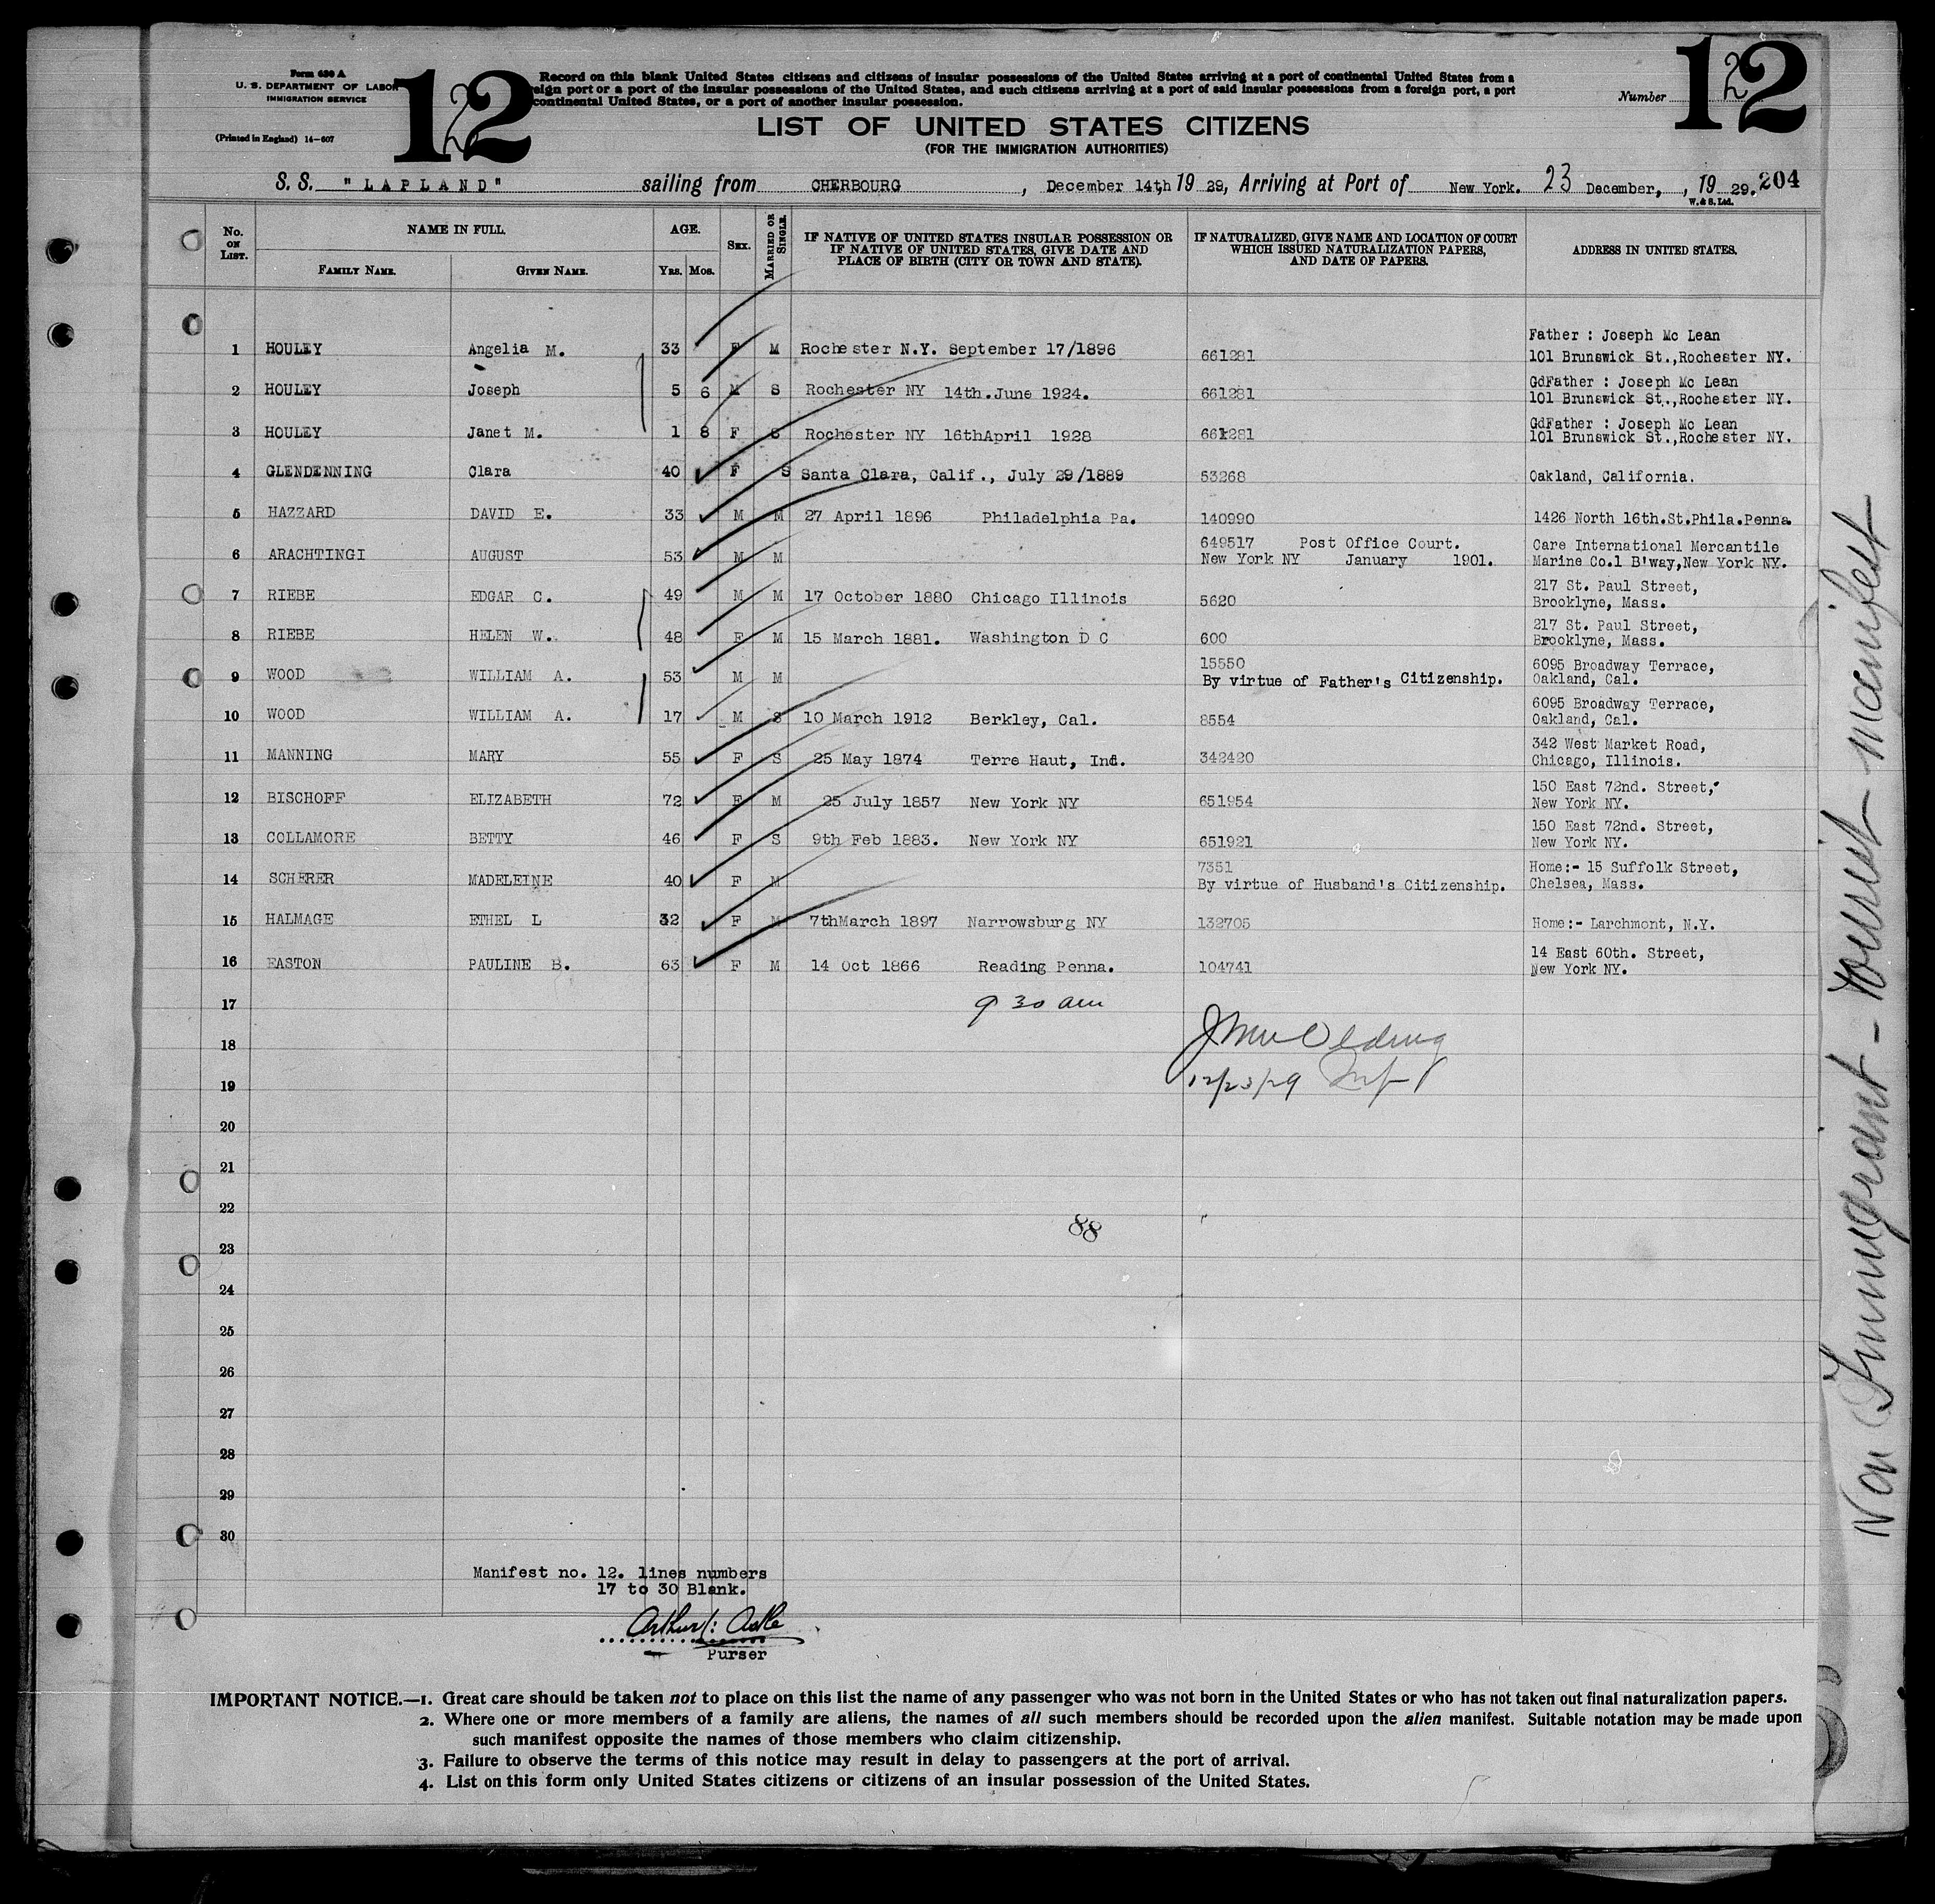 Form 630 A
U. S. DEPARTMENT OF LABOR
IMMIGRATION SERVICE
(Printed in England) 14-607
12
2
Record on this blank United States citizens and citizens of insular possessions of the United States arriving at a port of continental United States from a
eign port or a port of the insular possessions of the United States, and such citizens arriving at a port of said insular possessions from a foreign port, a port
continental United States, or a port of another insular possession.
Number 2
12
LIST OF UNITED STATES CITIZENS
(FOR THE IMMIGRATION AUTHORITIES)
S. S. "LAPLAND" sailing from CHERBOURG, December 14th, 19 29, Arriving at Port of New York. 23 December, , 19 29. 204
W. & S. Ltd.
No. ON LIST. NAME IN FULL. AGE. SEX. MARRIED OR SINGLE. IF NATIVE OF UNITED STATES INSULAR POSSESSION OR IF NATIVE OF UNITED STATES, GIVE DATE AND PLACE OF BIRTH (CITY OR TOWN AND STATE). IF NATURALIZED, GIVE NAME AND LOCATION OF COURT WHICH ISSUED NATURALIZATION PAPERS, AND DATE OF PAPERS. ADDRESS IN UNITED STATES.
FAMILY NAME. GIVEN NAME. YRS. MOS.
Father : Joseph Mc Lean
1 HOULEY Angelia M. 33 F M Rochester N.Y. September 17/1896 661281 101 Brunswick St.,Rochester NY.
GdFather : Joseph Mc Lean
2 HOULEY Joseph 5 6 M S Rochester NY 14th.June 1924. 661281 101 Brunswick St.,Rochester NY.
GdFather : Joseph Mc Lean
3 HOULEY Janet M. 1 8 F S Rochester NY 16thApril 1928 661281 101 Brunswick St.,Rochester NY.
4 GLENDENNING Clara 40 F S Santa Clara, Calif., July 29/1889 53268 Oakland, California.
5 HAZZARD DAVID E. 33 M M 27 April 1896 Philadelphia Pa. 140990 1426 North 16th.St.Phila.Penna.
649517 Post Office Court. Care International Mercantile
6 ARACHTINGI AUGUST 53 M M New York NY January 1901. Marine Co.1 B'way,New York NY.
217 St. Paul Street,
7 RIEBE EDGAR C. 49 M M 17 October 1880 Chicago Illinois 5620 Brooklyne, Mass.
217 St. Paul Street,
8 RIEBE HELEN W. 48 F M 15 March 1881. Washington D C 600 Brooklyne, Mass.
15550 6095 Broadway Terrace,
9 WOOD WILLIAM A. 53 M M By virtue of Father's Citizenship. Oakland, Cal.
6095 Broadway Terrace,
10 WOOD WILLIAM A. 17 M S 10 March 1912 Berkley, Cal. 8554 Oakland, Cal.
342 West Market Road,
11 MANNING MARY 55 F S 25 May 1874 Terre Haut, Ind. 342420 Chicago, Illinois.
150 East 72nd. Street,
12 BISCHOFF ELIZABETH 72 F M 25 July 1857 New York NY 651954 New York NY.
150 East 72nd. Street,
13 COLLAMORE BETTY 46 F S 9th Feb 1883. New York NY 651921 New York NY.
7351 Home:- 15 Suffolk Street,
14 SCHERER MADELEINE 40 F M By virtue of Husband's Citizenship. Chelsea, Mass.
15 HALMAGE ETHEL L 32 F M 7thMarch 1897 Narrowsburg NY 132705 Home:- Larchmont, N.Y.
14 East 60th. Street,
16 EASTON PAULINE B. 63 F M 14 Oct 1866 Reading Penna. 104741 New York NY.
17 9 30 am
18
19 12/23/29
20
21
22
88
23
24
25
26
27
28
29
30
Manifest no. 12. lines numbers
17 to 30 Blank.
Purser
IMPORTANT NOTICE.—1. Great care should be taken not to place on this list the name of any passenger who was not born in the United States or who has not taken out final naturalization papers.
2. Where one or more members of a family are aliens, the names of all such members should be recorded upon the alien manifest. Suitable notation may be made upon
such manifest opposite the names of those members who claim citizenship.
3. Failure to observe the terms of this notice may result in delay to passengers at the port of arrival.
4. List on this form only United States citizens or citizens of an insular possession of the United States.
Non Immigrant - tourist manifest